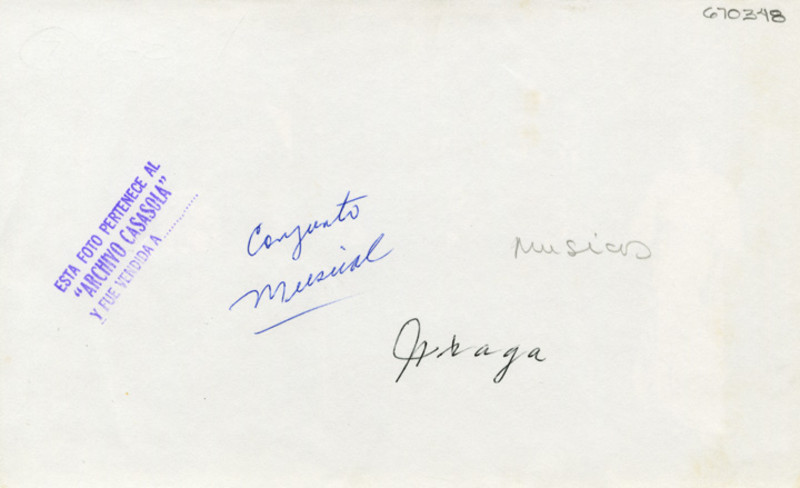 670348
ESTA FOTO PERTENECE AL
"ARCHIVO CASASOLA"
Y FUE VENDIDA A ............
Conjunto
Musical
Musicos